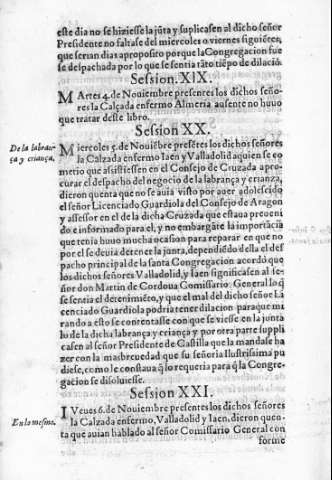 este dia no se hiziesse la jūta y suplicasen al dicho señor
Presidente no faltase del miercoles o viernes siguiēte,
que serian dias aproposito porque la Congregacion fue
se despachada por lo que se sentia tāto tiēpo de dilaciō.
Session. XIX.
MArtes 4. de Nouiembre presentes los dichos seño-
res la Calçada enfermo Almeria ausente no huuo
que tratar deste libro.
Session XX.
De la labran
ça y criança.
MIercoles 5. de Nouiēbre presētes los dichos señores
la Calzada enfermo Iaen y Valladolid aquien se co
metio que asistiessen en el Consejo de Cruzada apro-
curar el despacho del negocio de la labrança y crianza,
dieron quenta que no se auia visto por auer adolescido
el señor Licenciado Guardiola del Consejo de Aragon
y assessor en el de la dicha Cruzada que estaua preueni
do e informado para el, y no embargāte la importācia
que tenia huuo mucha ocasion para reparar en que no
por el se deuia detener la junta, dependiēdo della el des
pacho principal de la santa Congregacion acordó que
los dichos señores Valladolid, y Iaen significasen al se-
ñor don Martin de Cordoua Comissario General lo q̄
se sentia el detenimiēto, y que el mal del dicho señor Li
cenciado Guardiola podria tener dilacion para que mi
rando a esto se contentasse con que se viesse en la junta
lo de la dicha labrança y criança y por otra parte supli
casen al señor Presidente de Castilla que la mandase ha
zer con la mas breuedad que su señoria Ilustrisima pu
diese, como le constaua q̄ lo requeria para q̄ la Congre-
gacion se disoluiesse.
Session XXI.
En lo mesmo.
IVeues 6. de Nouiembre presentes los dichos señores
la Calzada enfermo, Valladolid y Iaen, dieron quen
ta que auian hablado al señor Comissario General con
forme